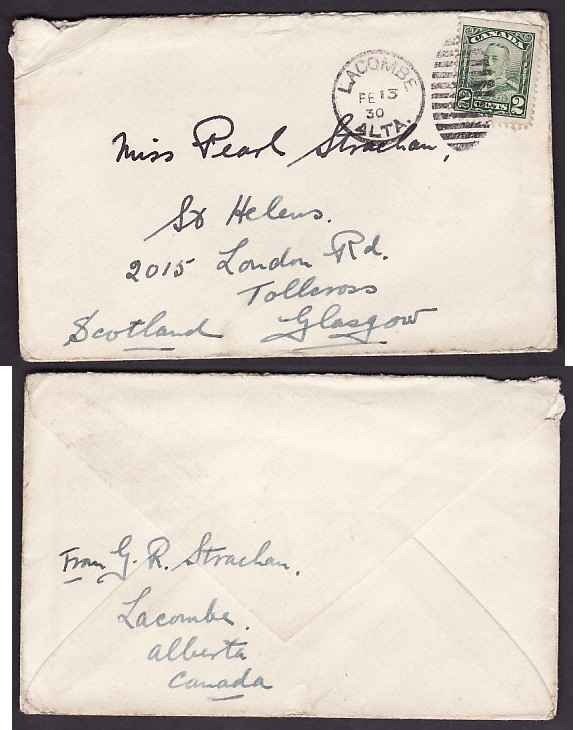 LACOMBE
FE 13
30
ALTA.
CANADA
2 CENTS 2
Miss Pearl Strachan,
St Helens.
2015 London Rd.
Tollcross
Scotland Glasgow
From G. R. Strachan.
Lacombe.
alberta
Canada